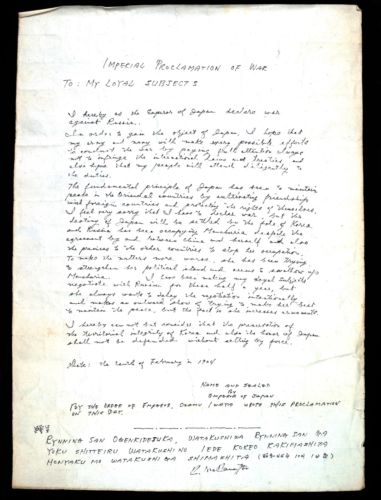 IMPERIAL PROCLAMATION OF WAR
TO: MY LOYAL SUBJECTS
I hereby as the Emperor of Japan declare war
against Russia.
In order to gain the object of Japan, I hope that
my army and navy will make every possible efforts
to conduct the war by paying full attention always
not to infringe the international laws and treaties, and
also hope that my people will attend diligently to
the duties.
The fundamental principle of Japan has been to maintain
peace in the Oriental countries by cultivating friendship
with foreign countries and protecting the rights of themselves.
I feel very sorry that I have to declare war, but the
destiny of Japan will be settled by the fate of Korea
and Russia has been occupying Manchuria despite the
agreement by and between China and herself and also
the promises to the other countries to stop the occupation.
To make the matters more worse, she has been trying
to strengthen her political stand and seems to swallow up
Manchuria. I have been making my loyal subjects
negotiate with Russia for these half a year, but
she always wants to delay the negotiation intentionally
and makes an outward show of trying to make her best
to maintain the peace, but the fact is she increases armaments.
I hereby can not but consider that the preservation of
the territorial integrity of Korea and also the honor of Japan
shall not be defended without selling by force.
Date: The tenth of February in 1904
NAME AND SEALED
BY
EMPEROR OF JAPAN
BY THE ORDER OF EMPEROR, OSAMU WROTE THIS PROCLAMATION
ON THIS DAY.
RYNNING SAN OGENKIDESUKA, WATAKUSHIWA RYNNING SAN GA
YOKU SHITTEIRU WATAKUSHINO IEDE KOREO KAKIMASHITA
HONYAKU MO WATAKUSHI GA SHIMASHITA